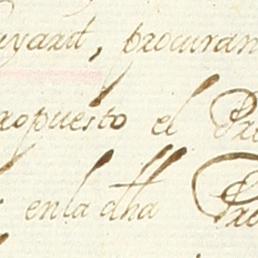 yard, procuran
ropuesto el Pr
enla dha Pro